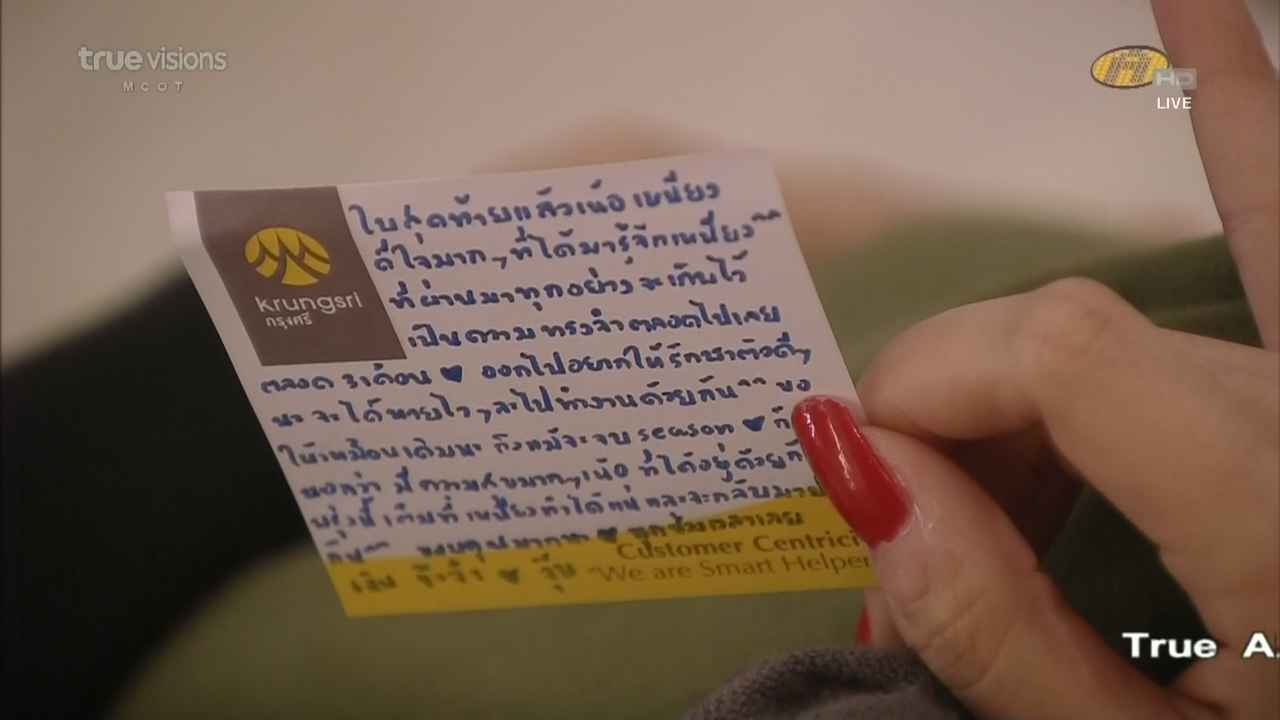 true visions
MCOT
HD
LIVE
ใบสุดท้ายแล้วเน้อ เหนี่ยง
ดีใจมากๆที่ได้มารู้จักเหนี่ยง^^
ที่ผ่านมาทุกอย่าง จะเก็บไว้
เป็นความทรงจำตลอดไปเลย
Krungsri
กรุงศรี
ตลอด 3 เดือน ♥ ออกไปอยากให้รักษาตัวดีๆ
นะ จะได้หายไวๆ จะไปทำงานด้วยกัน^^ ขอ
ให้เหมือนเดิมนะ ถึงแม้จะจบ season ♥
บอกว่า มีความสุขมากๆเน้อ ที่ได้อยู่ด้วย
พรุ่งนี้ เต็มที่ เหนี่ยงทำได้ และจะกลับมา
กัน^^ ขอบคุณมากนะ ♥ ทุกช่วงเวลาเลย
Customer Centrici
"We are Smart Helper
True A.